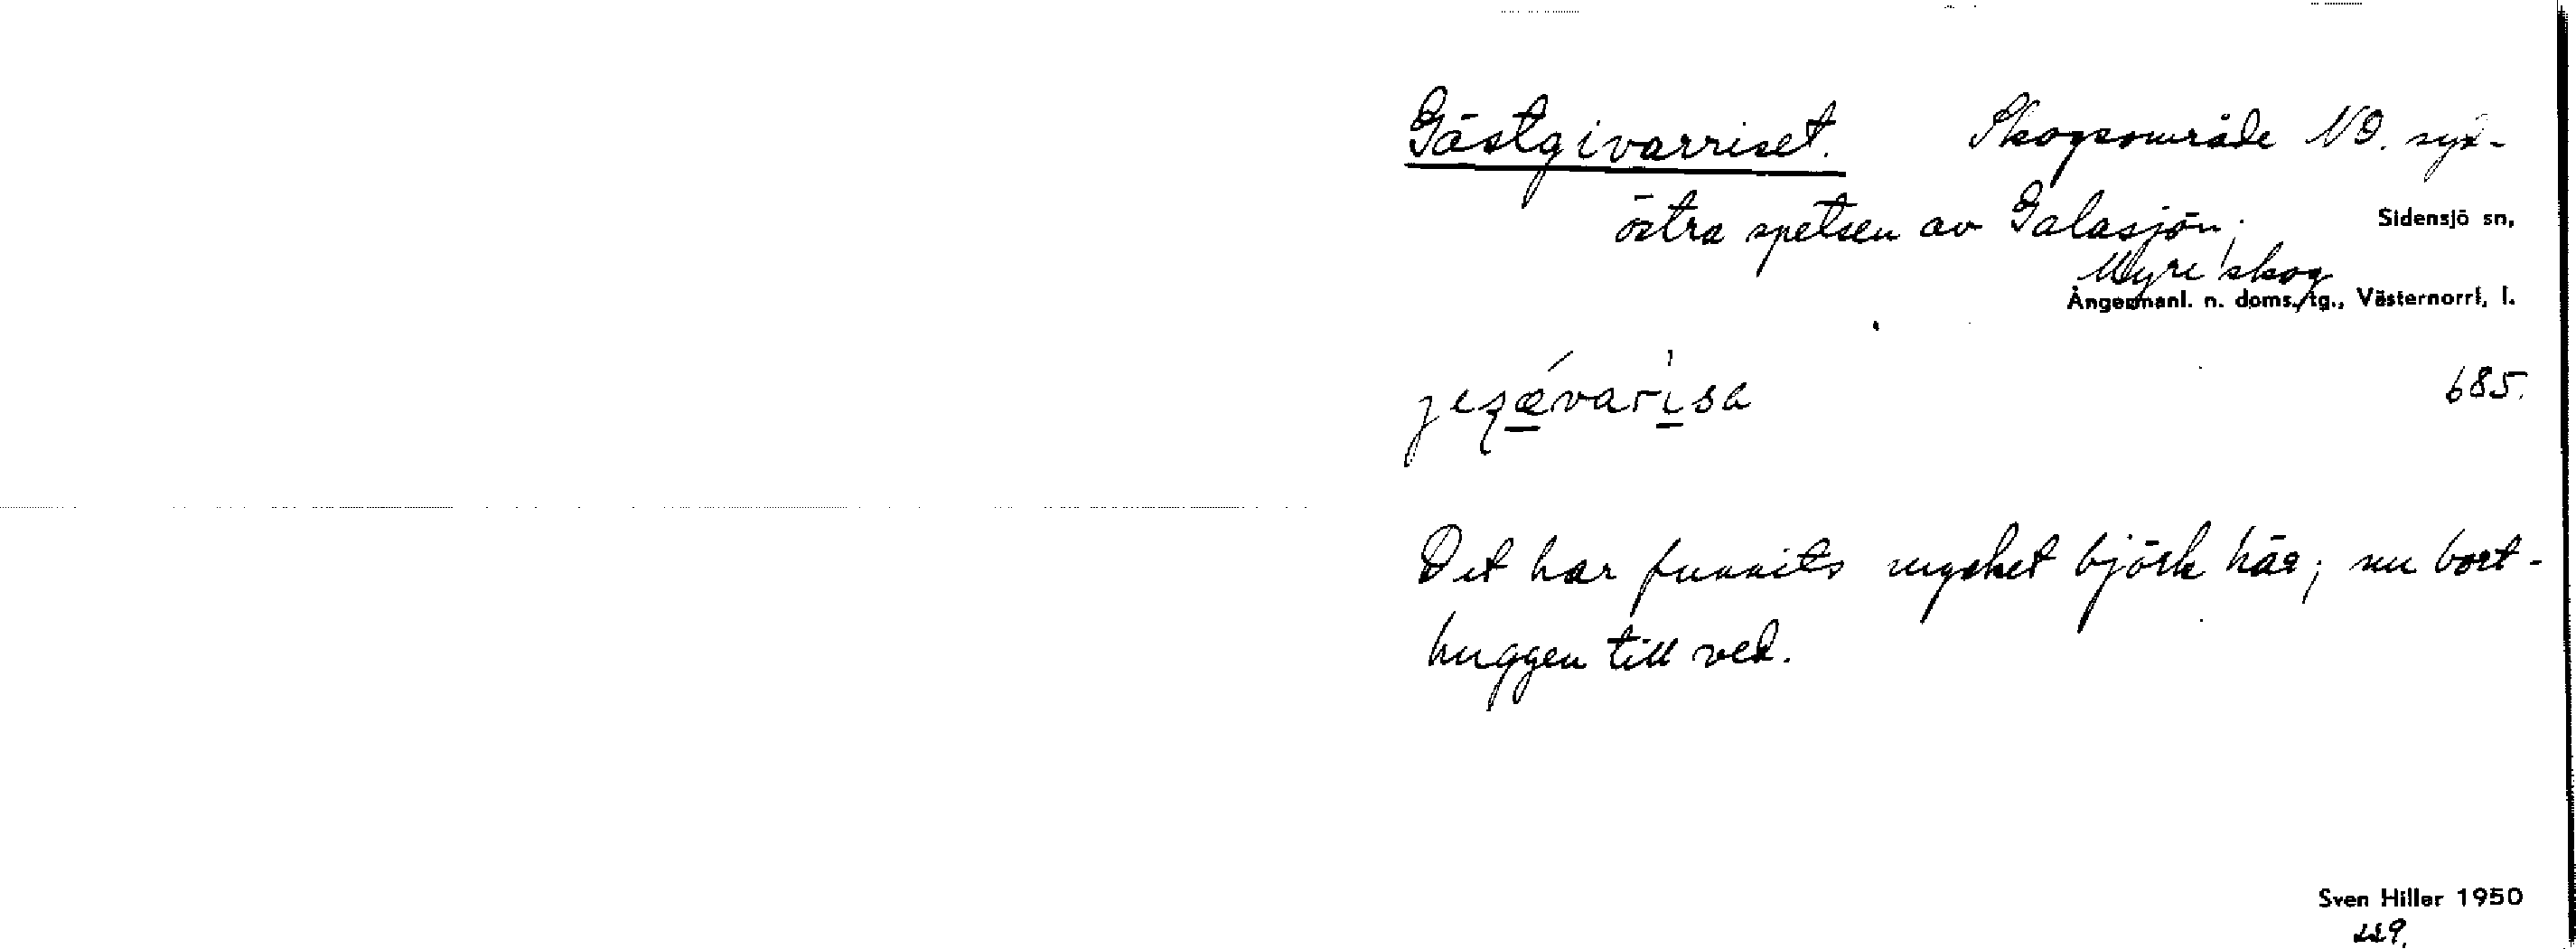 Gästgivarriset. Skogsområde NO. syd-
östra spetsen av Galasjön;
Sidensjö sn,
Myre skog
Ångermanl. n. doms. tg., Västernorrl. l.
685.
Det har funnits mycket björk här; nu bort-
huggen till ved.
Sven Hiller 1950
229.